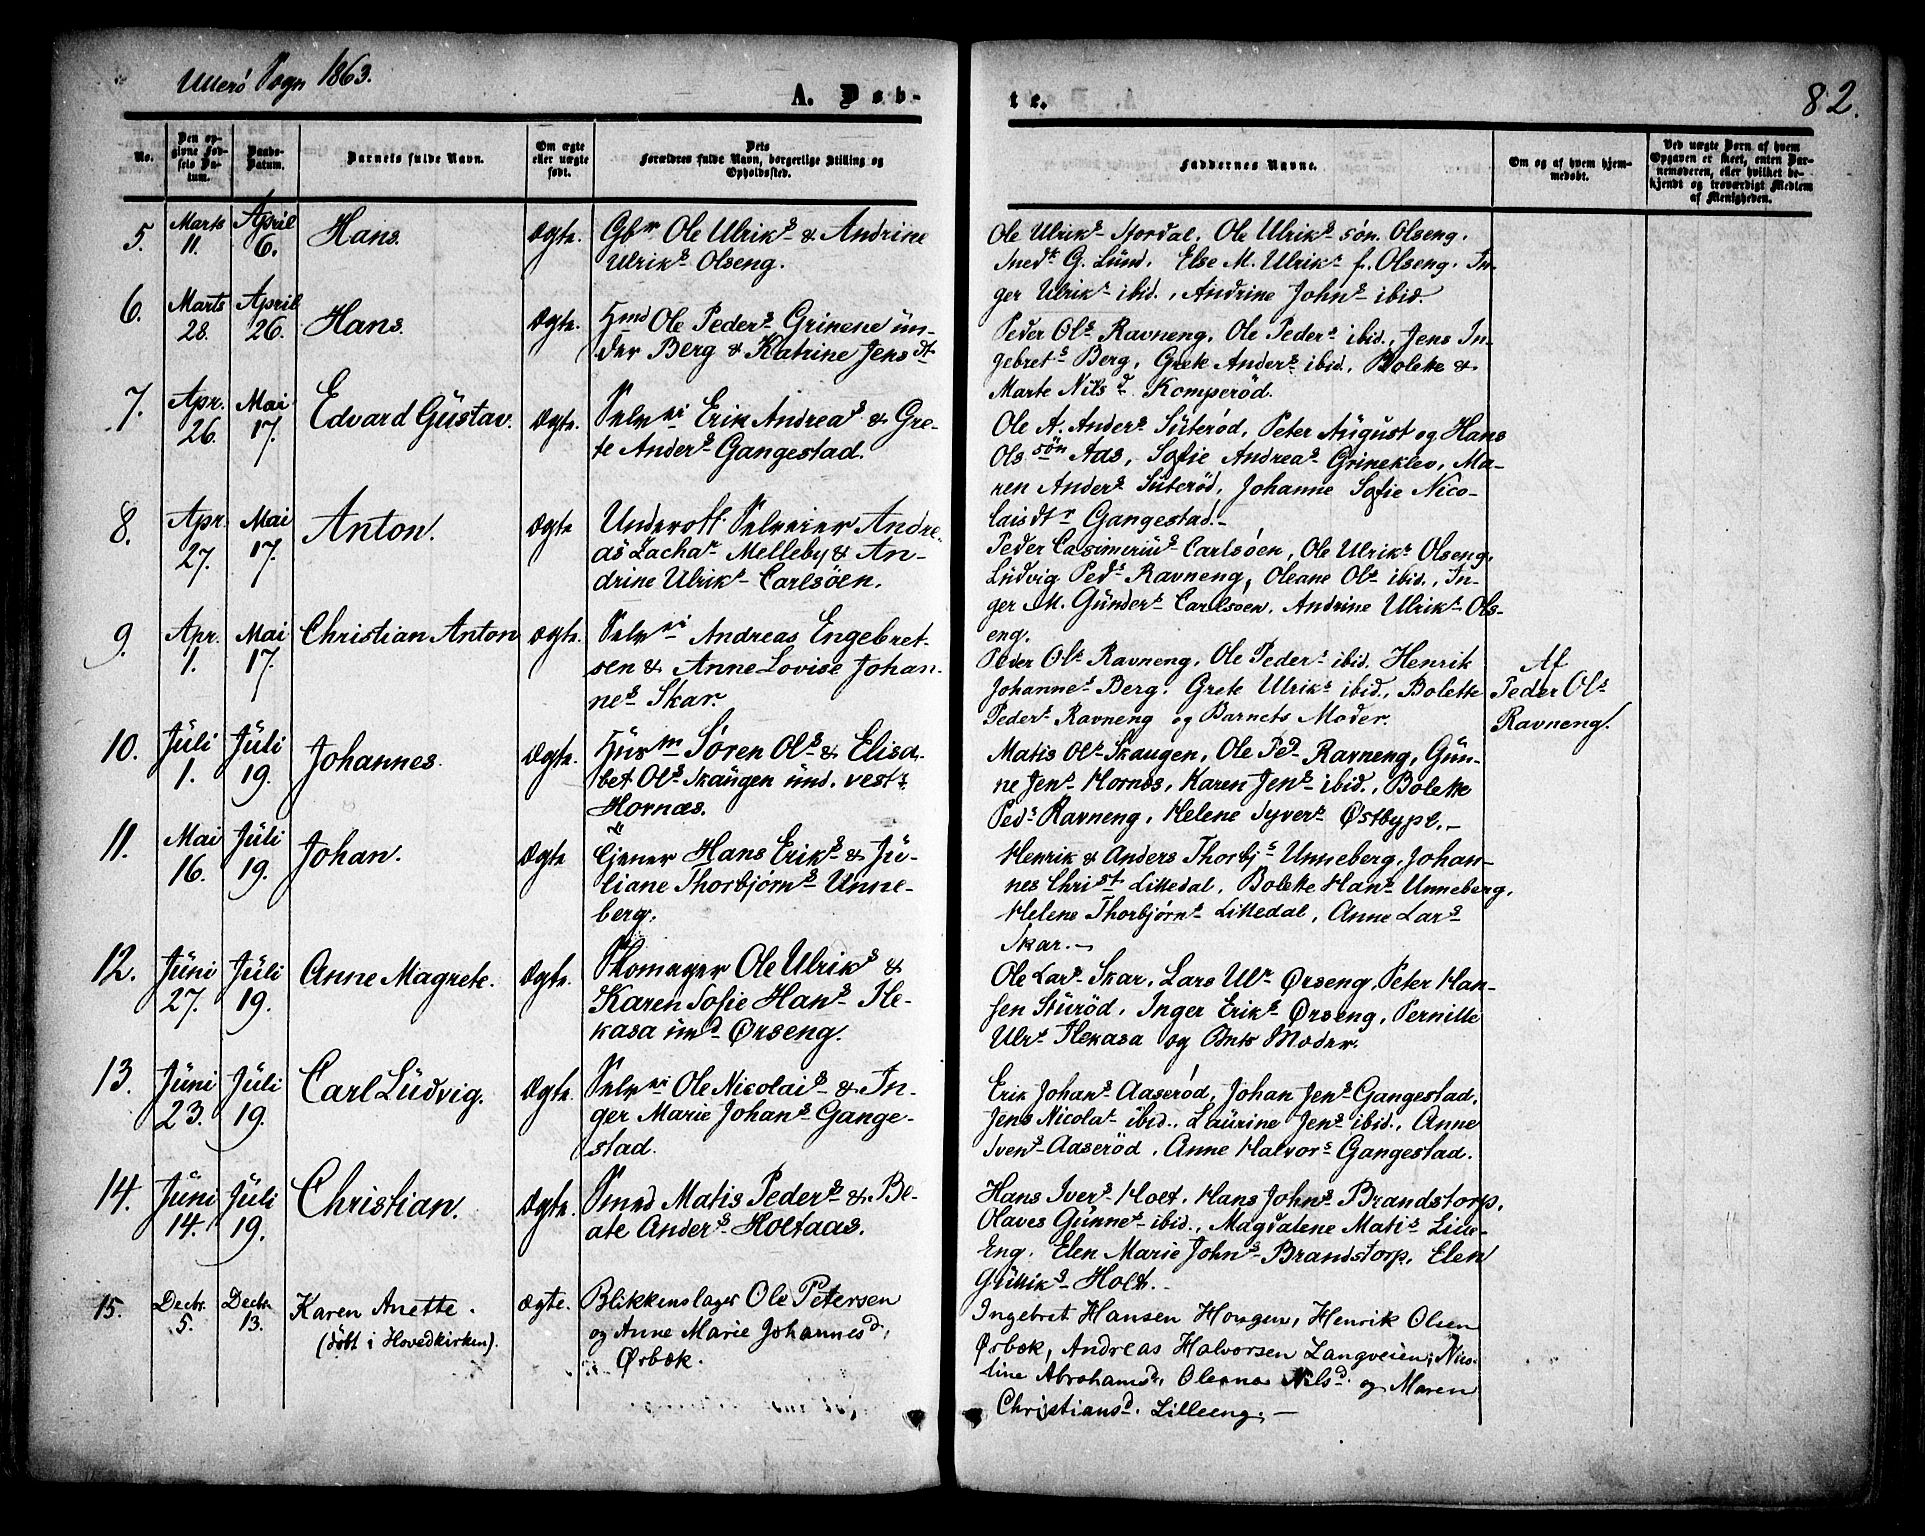 Ullerö Sogn 1863.
A. Døb-
te.
82.
No.
Den op-
givne Fød-
sels Da-
tum.
Daabs-
Datum.
Barnets fulde Navn.
Om ægte
eller uægte
født.
Dets
Forældres fulde Navn, borgerlige Stilling og
Opholdssted.
Faddernes Navne.
Om og af hvem hjem-
medøbt.
Ved uægte Børn af hvem
Opgaven er skeet, enten Bar-
nemoderen, eller hvilket be-
kjendt og troværdigt Medlem
af Menigheden.
5. Marts 11. April 6. Hans. Ægte.
Gbr Ole Ulriks & Andrine
Ulriks Olseng.
Ole Ulriks Nordal, Ole Ulriks søn. Olseng.
G. Lund. Else M. Ulriks f. Olseng. In-
ger Ulriks ibid., Andrine Johns ibid.
6. Marts 28. April 26. Hans. Ægte.
Hmd Ole Peders Grinene ün-
der Berg & Katrine Jensdt
Peder Ols Ravneng, Ole Peders ibid., Jens In-
gebrets Berg, Grete Anders ibid. Bolette &
Marte Nilsd Komperöd.
7. Apr. 26. Mai 17. Edvard Güstav. Ægte.
Selvei Erik Andreas & Gre-
te Anders Gangestad.
Ole A. Anders Süteröd, Peter Aügust og Hans
Olssön Aas, Sofie Andreas Grineklev, Ma-
ren Anders Süteröd, Johanne Sofie Nico-
laisdtr Gangestad.-
8. Apr. 27. Mai 17. Anton. Ægte
Underoff. Selveier Andre-
as Zachar Melleby & An-
drine Ulriks Carlsöen.
Peder Casimeriüs Carlsöen, Ole Ulriks Olseng,
Lüdvig Peds Ravneng, Oleane Ols ibid., In-
ger M. Günders Carlsöen, Andrine Ulriks Ols-
eng.
9. Apr. 1. Mai 17. Christian Anton Ægte.
Selvei Andreas Engebret-
sen & Anne Lovise Johan-
nes Skar.
Peder Ols Ravneng, Ole Peders ibid. Henrik
Johannes Berg, Grete Ulriks ibid., Bolette
Peders Ravneng og Barnets Moder.
Af
Peder Ols
Ravneng.
10. Jüli 1. Jüli 19. Johannes. Ægte.
Hüsm Sören Ols & Elisa-
bet Ols Skaügen ünd. vestr
Hornæs.
Matis Ols Skaugen, Ole Peds Ravneng, Gün-
ne Jens Hornæs, Karen Jens ibid., Bolette
Peds Ravneng, Helene Syvers Østbypl.-
11. Mai 16. Jüli 19. Johan. Ægte
Tjener Hans Eriks & Jü-
liane Thorbjørns Unne-
berg.
Henrik & Anders Thorbjs Unneberg, Johan-
nes Christ Lilledal, Bolette Hans Unneberg,
Helene Thorbjørns Lilledal, Anne Lars
Skar.-
12. Jüni 27. Jüli 19. Anne Magrete. Ægte.
Skomager Ole Ulriks &
Karen Sofie Hans Fle-
kasa ünd Ørseng.
Ole Lars Skar, Lars Ulr Ørseng, Peter Han-
sen Stüröd, Inger Eriks Ørseng, Pernille
Ulrs Flekasa og Bnts Moder.
13. Jüni 23. Jüli 19. Carl Lüdvig. Ægte.
Selvei Ole Nicolais & In-
ger Marie Johans Gange-
stad.
Erik Johans Aaseröd, Johan Jens Gangestad,
Jens Nicolai ibid., Laürine Jens ibid., Anne
Ivens Aaseröd, Anne Halvors Gangestad.
14. Jüni 14. Jüli 19. Christian. Ægte.
Smed Matis Peders & Be-
ate Anders Holtaas.
Hans Ivers Holt, Hans Johns Brandstorp,
Olaves Günnes ibid., Magdalene Matis Lille-
Eng. Elen Marie Johns Brandstorp, Elen
Gülliks Holt.
15. Decbr. 5. Decbr. 13. Karen Anette. Ægte.
(døbt i Hovedkirken).
Blikkenslager Ole Petersen
og Anne Marie Johannesd.
Ørbæk.
Ingebret Hansen Hougen, Henrik Olsen
Ørbæk, Andreas Halvorsen Langveien, Nico-
line Abrahamsd, Oleana Nilsd. og Maren
Christiansd. Lilleeng.-